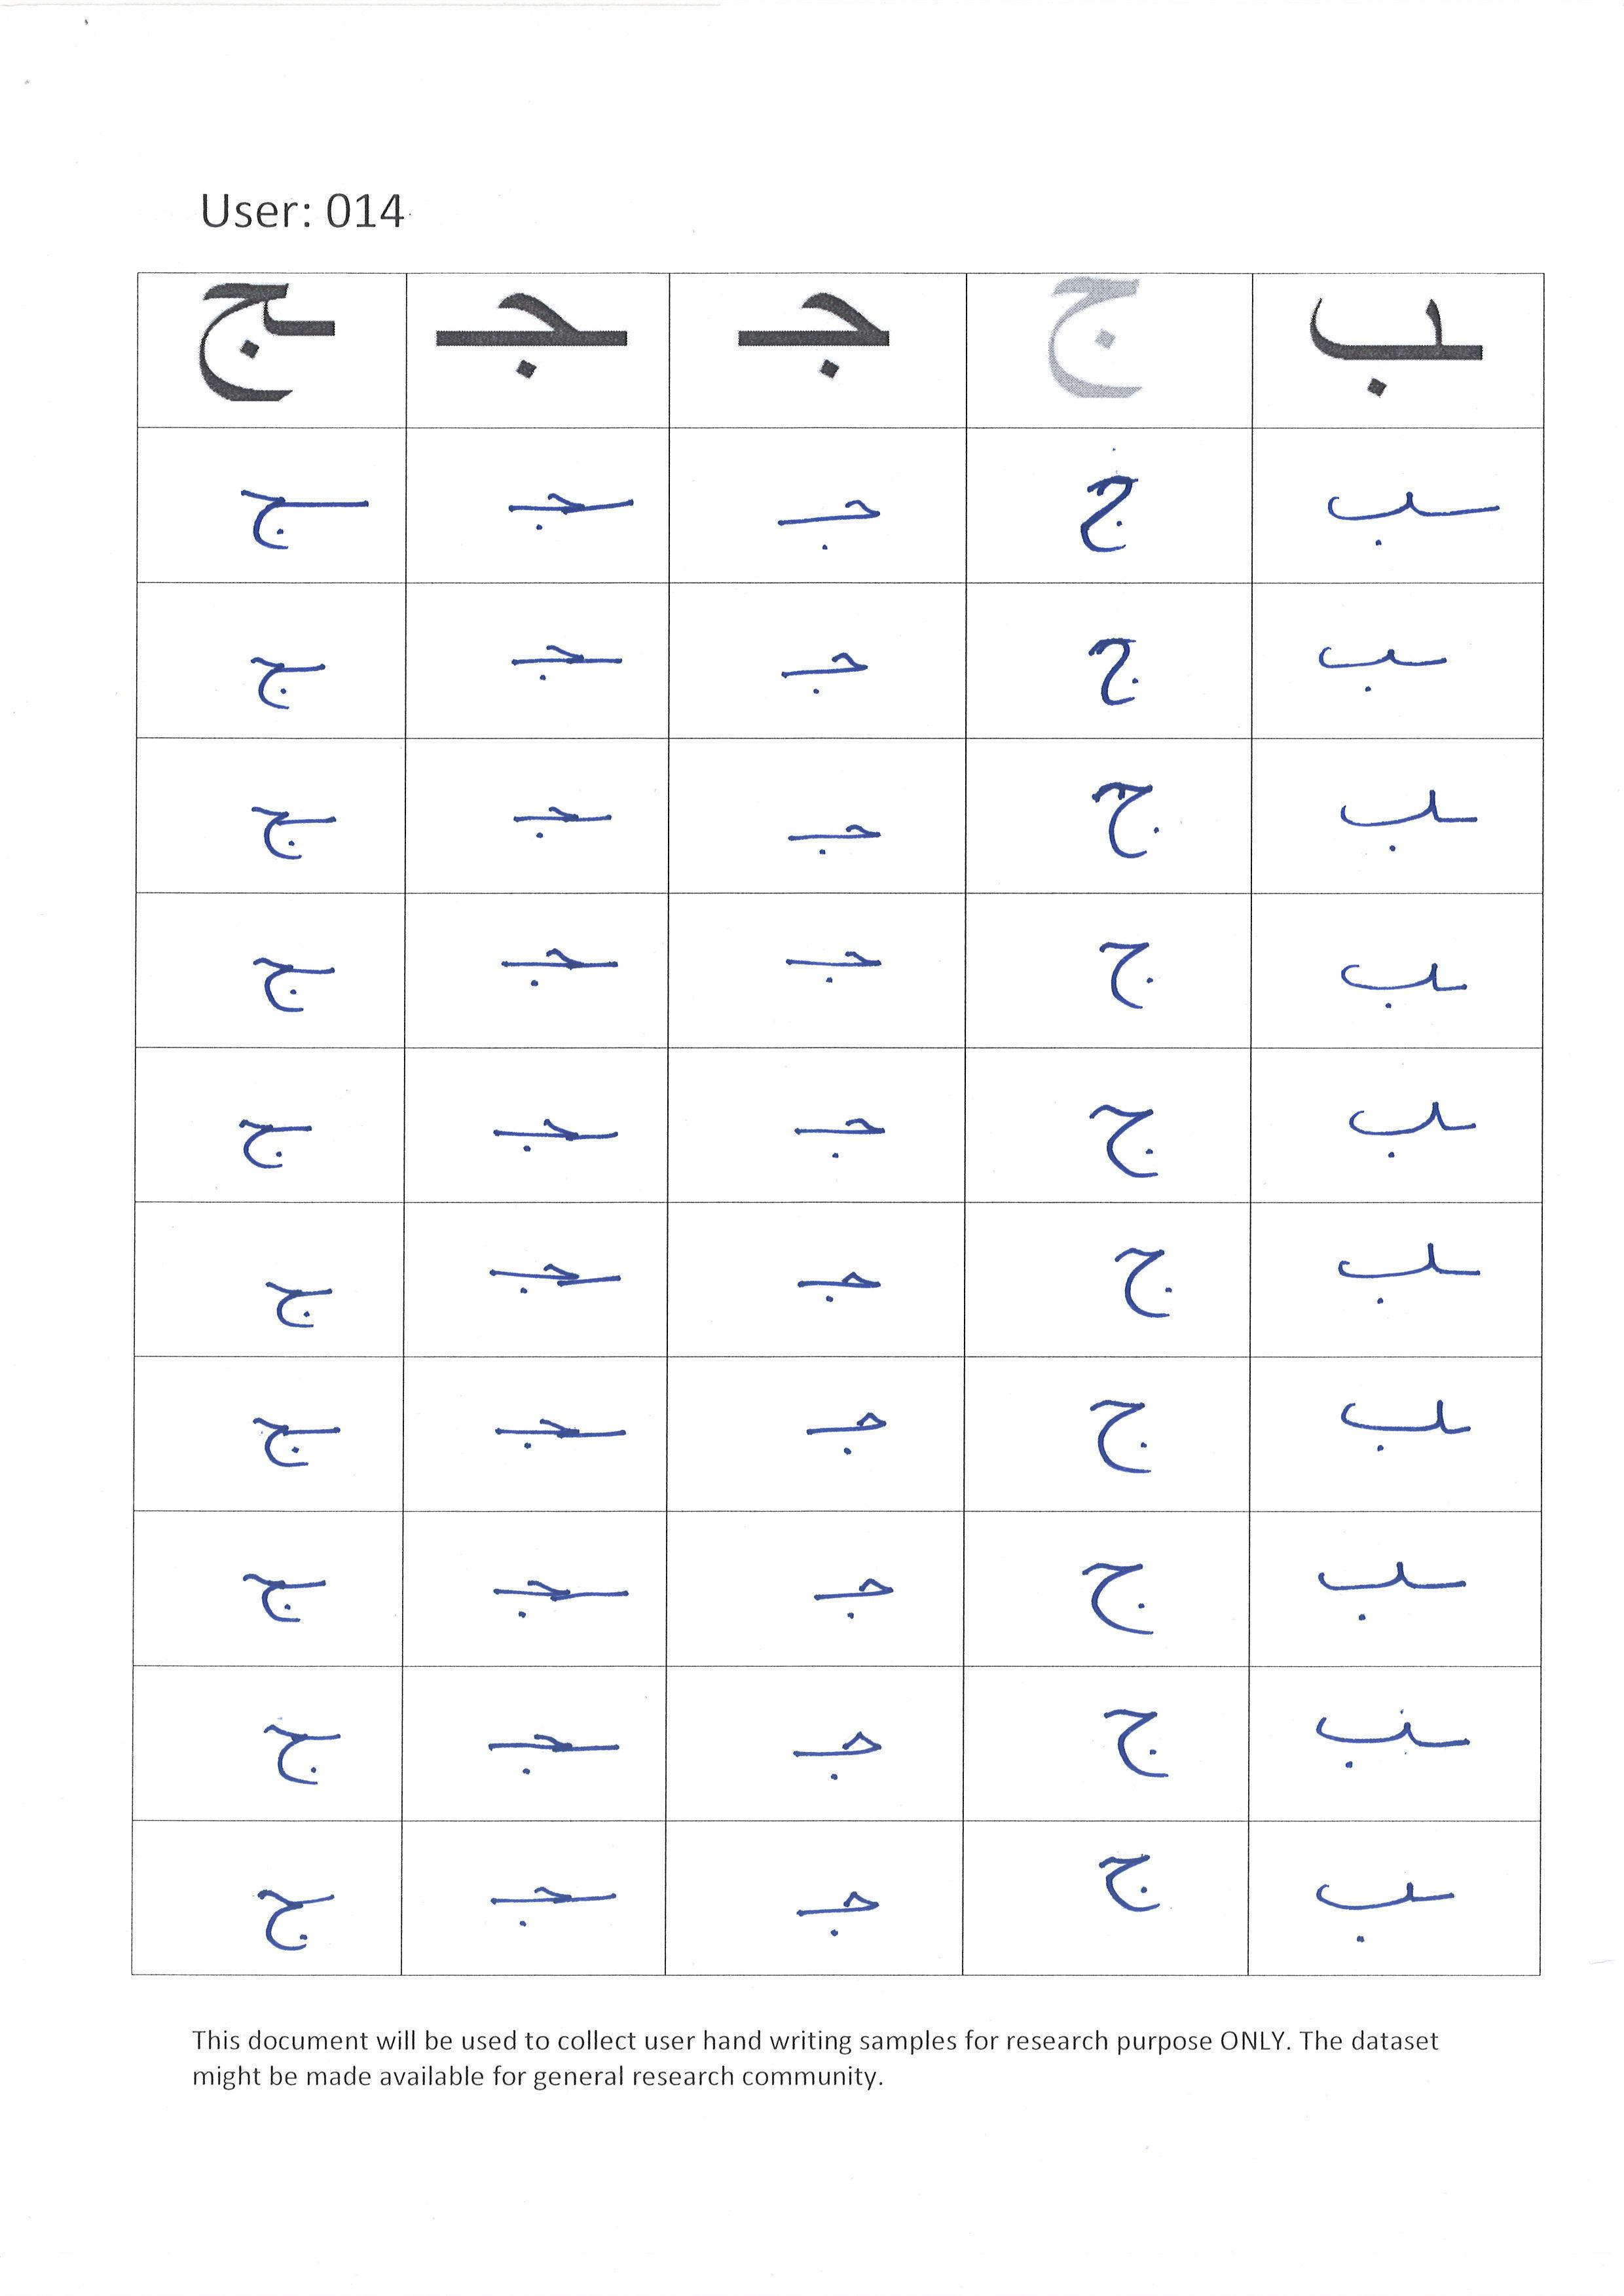 User: 014
ـب ج جـ ـجـ ـج
ـب ج جـ ـجـ ـج
ـب ج جـ ـجـ ـج
ـب ج جـ ـجـ ـج
ـب ج جـ ـجـ ـج
ـب ج جـ ـجـ ـج
ـب ج جـ ـجـ ـج
ـب ج جـ ـجـ ـج
ـب ج جـ ـجـ ـج
ـب ج جـ ـجـ ـج
ـب ج جـ ـجـ ـج
This document will be used to collect user hand writing samples for research purpose ONLY. The dataset
might be made available for general research community.